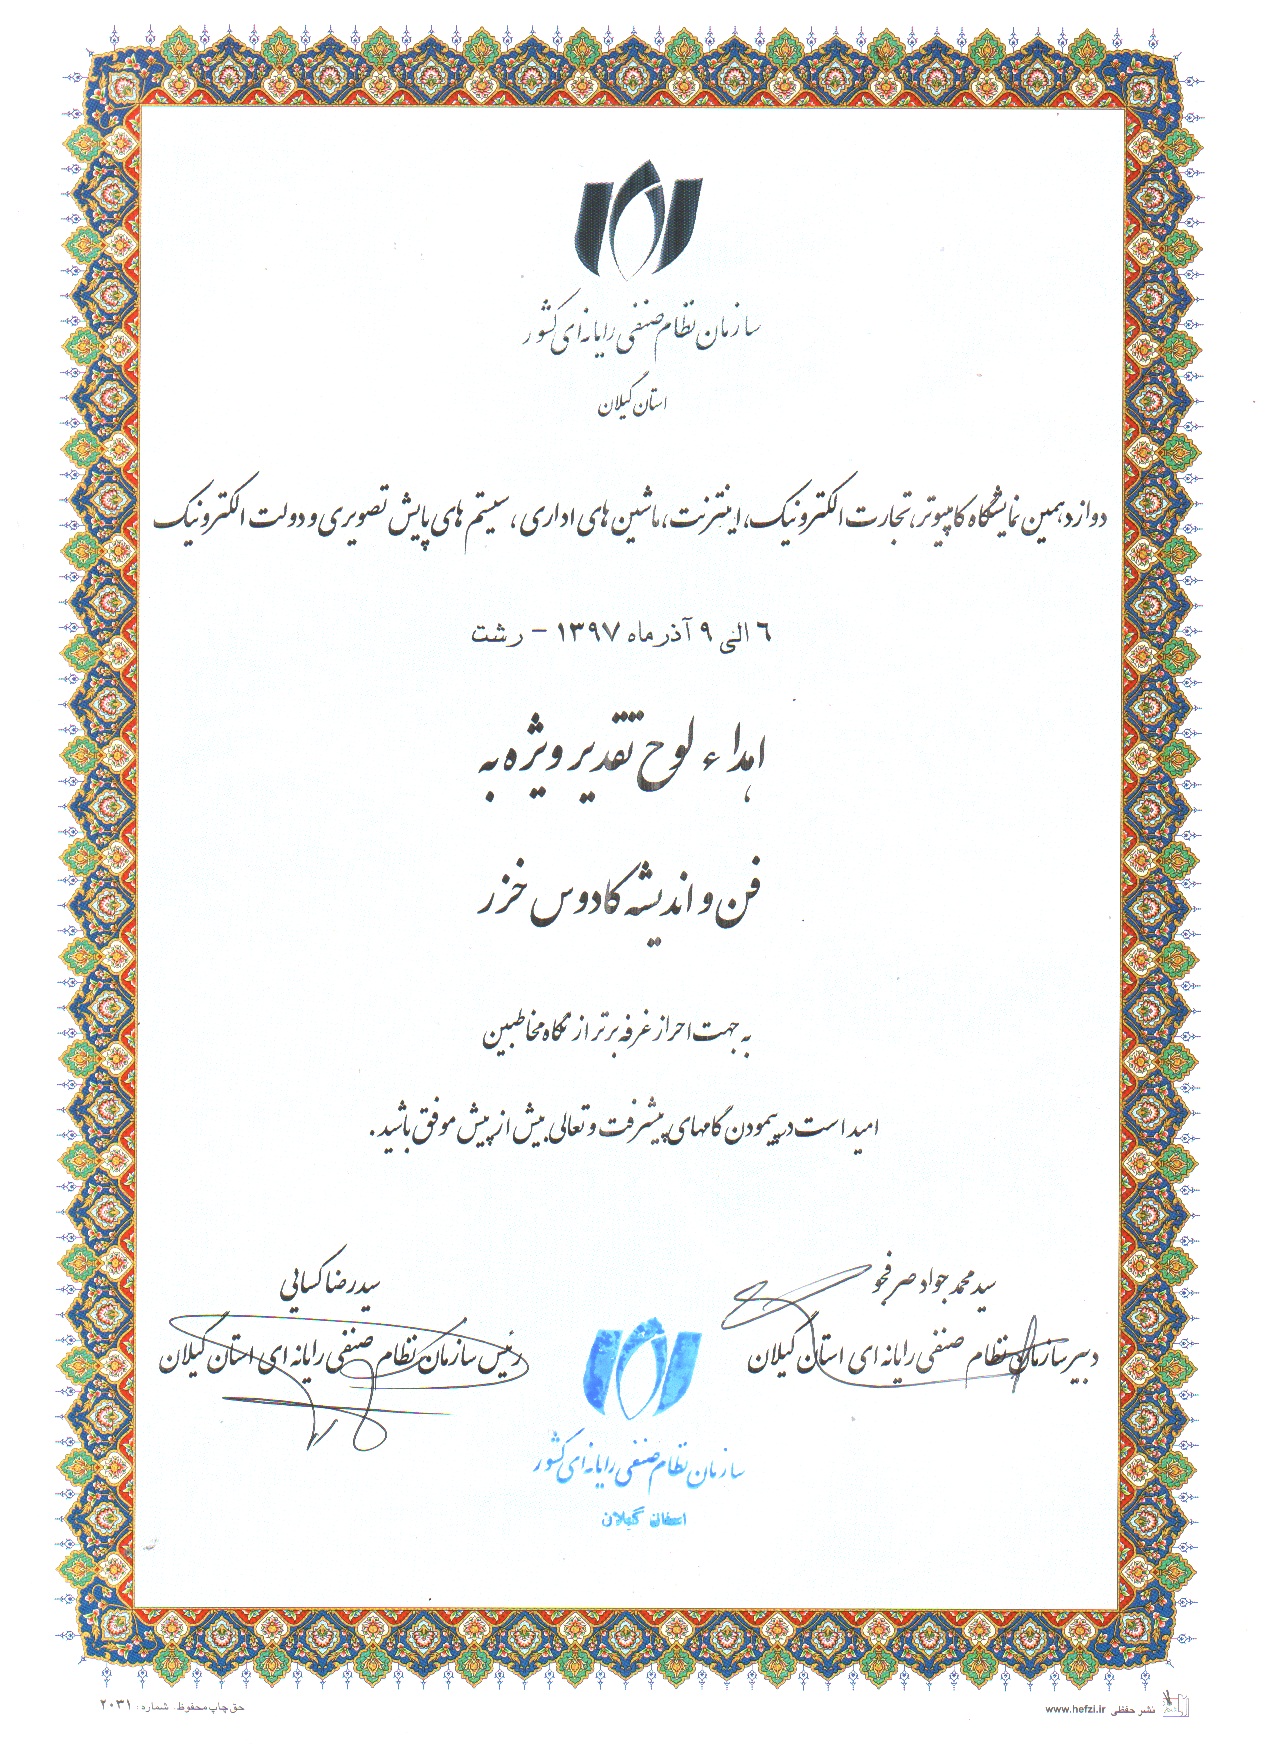 سازمان نظام صنفی رایانه ای کشور
استان گیلان
دوازدهمین نمایشگاه کامپیوتر، تجارت الکترونیک، اینترنت، ماشین های اداری، سیستم های پایش تصویری و دولت الکترونیک
۶ الی ۹ آذر ماه ۱۳۹۷ - رشت
اهداء لوح تقدیر ویژه به
فن و اندیشه کادوس خزر
به جهت احراز غرفه برتر از نگاه مخاطبین
امید است در پیمودن گامهای پیشرفت و تعالی بیش از پیش موفق باشید.
سید محمد جواد صرفجو
دبیر سازمان نظام صنفی رایانه ای استان گیلان
سید رضا کسایی
رئیس سازمان نظام صنفی رایانه ای استان گیلان
سازمان نظام صنفی رایانه ای کشور
استان گیلان
نشر حفظی www.hefzi.ir
حق چاپ محفوظ. شماره: ۲۰۳۱